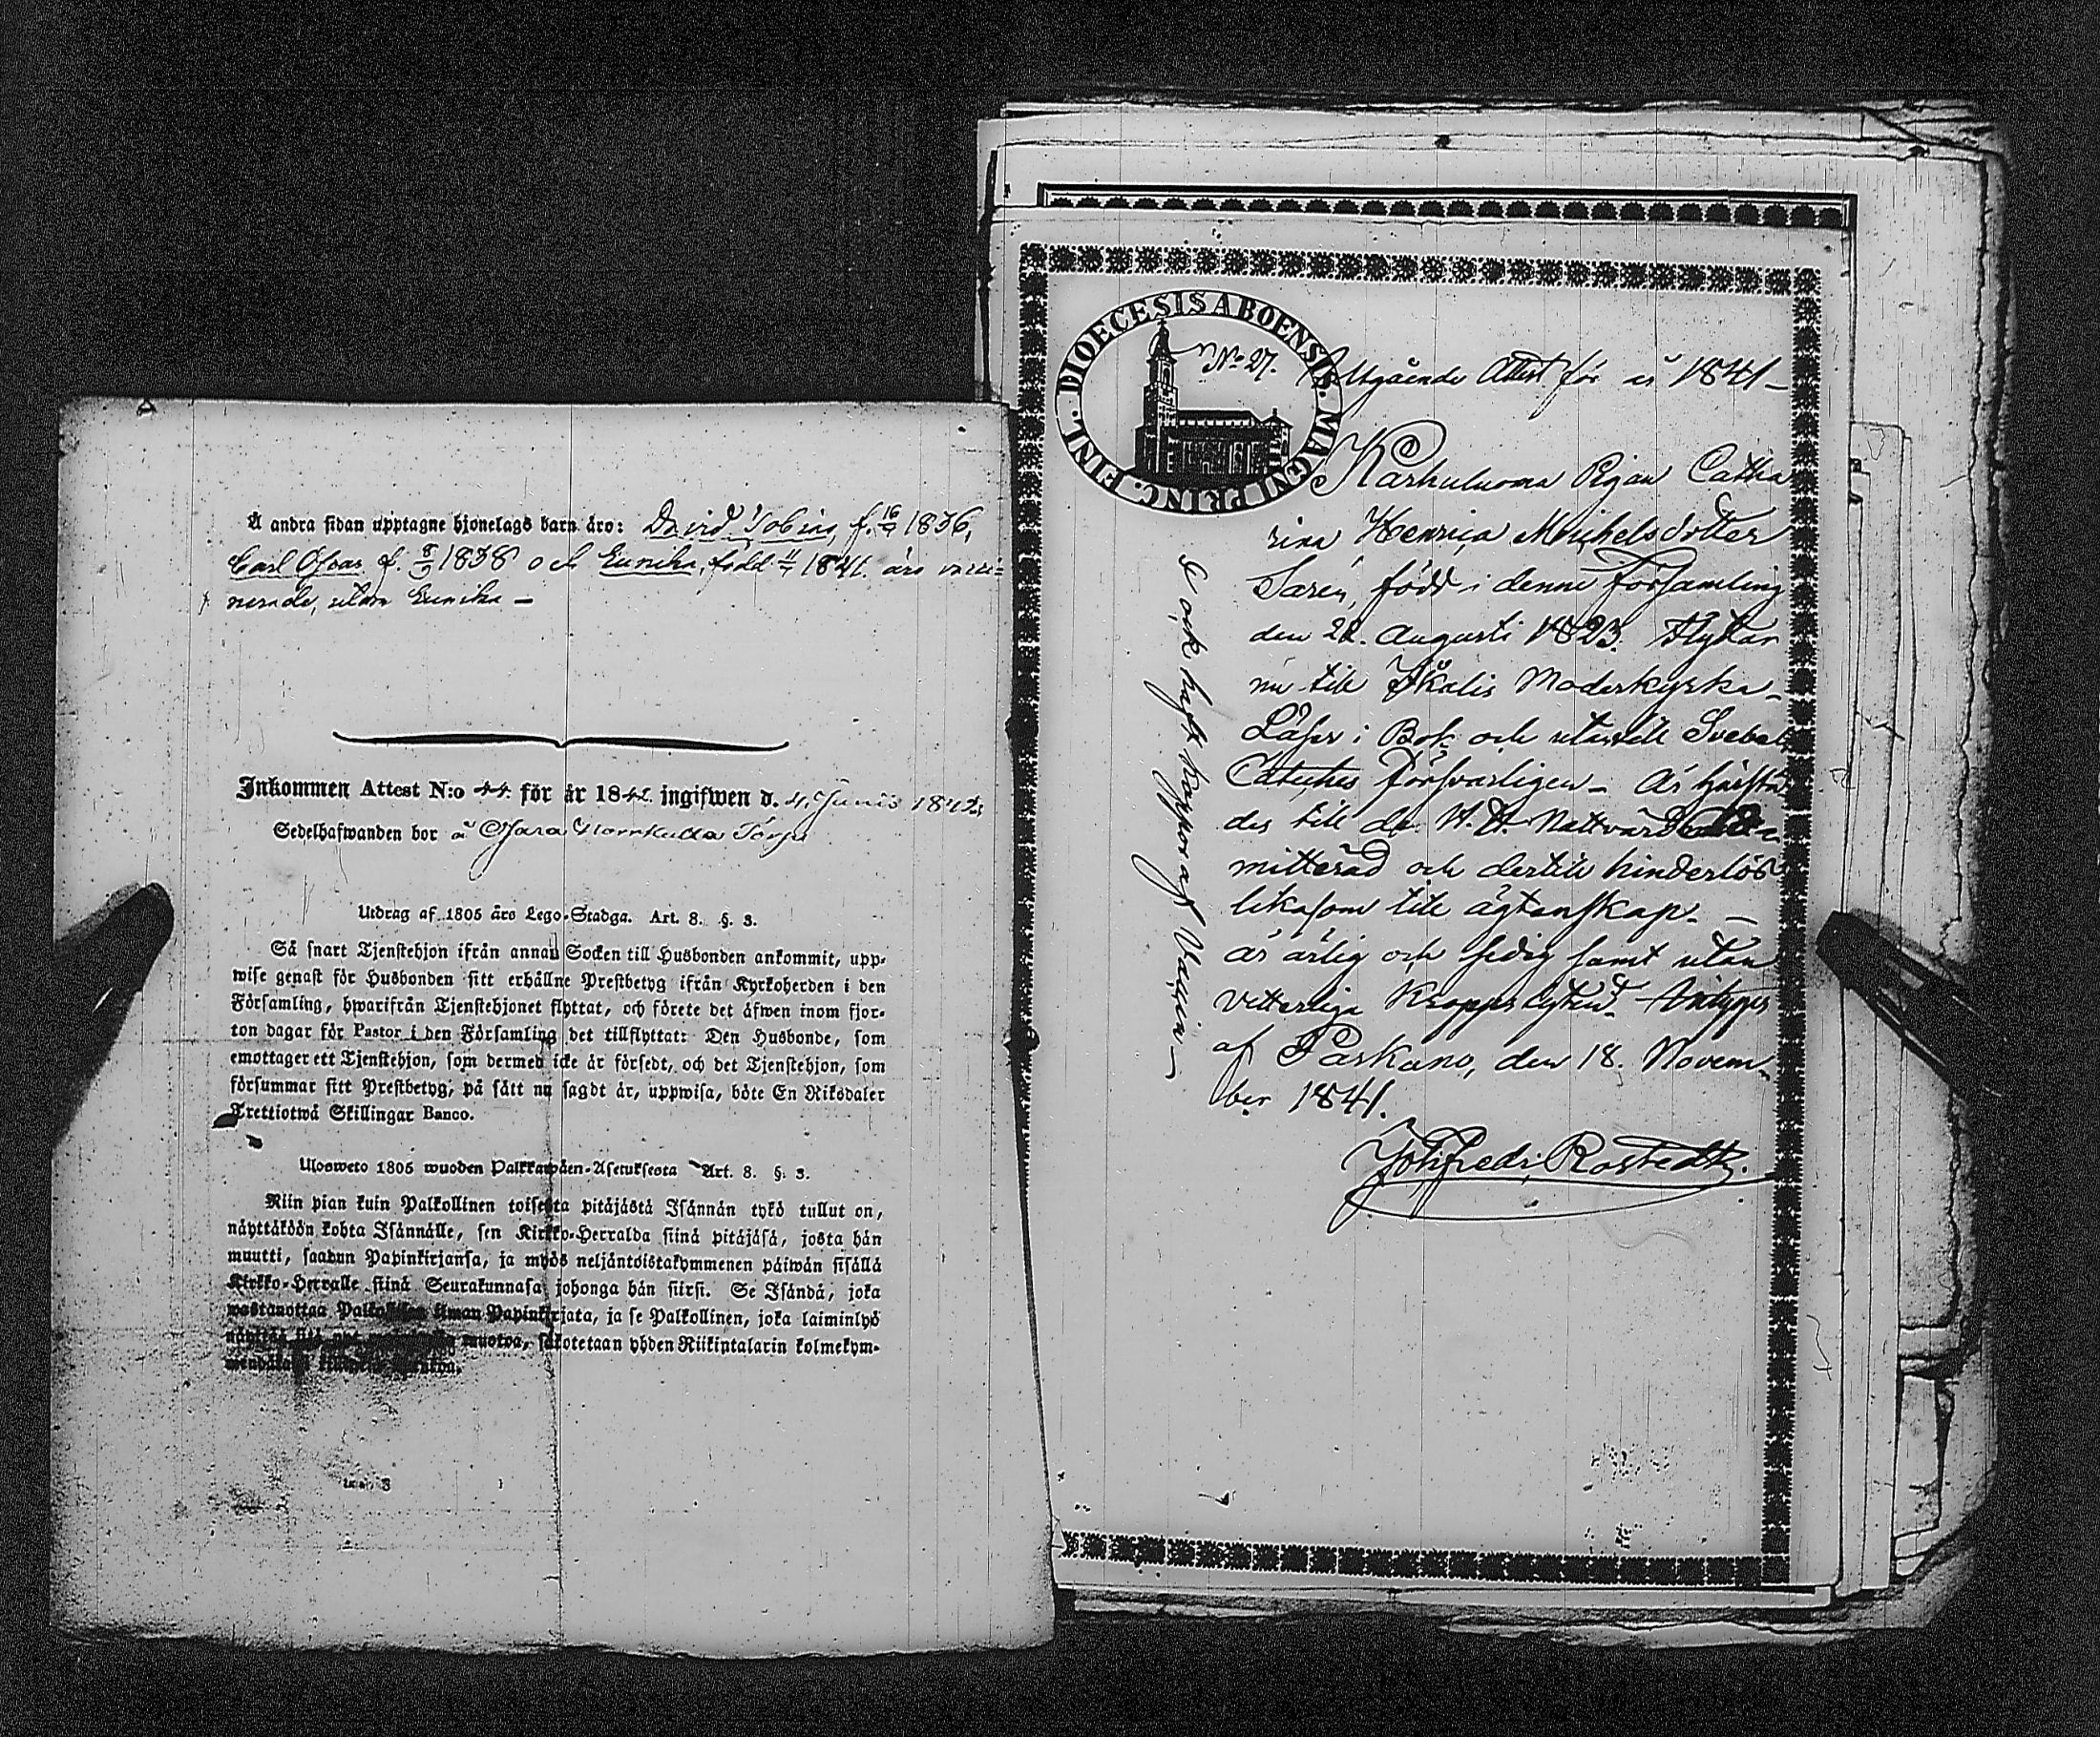 Å andra sidan upptagne hjonelags barn äro: David Tobias, f. 16/9 1836,
Carl Oscar f. 8/9 1838 och Eunika, född 11/7 1841. äro vacci=
nerade, utom Eunika —
Inkommen Attest N:o 44. för år 1842. ingifwen d. 4. Junii 1842.
Sedelhafwanden bor å Norrkulla Torp
Utdrag af 1805 års Lego-Stadga. Art. 8. §. 3.
Så snart Tjenstehjon ifrån annan Socken till Husbonden ankommit, upp-
wise genast för Husbonden sitt erhållne Prestbetyg ifrån Kyrkoherden i den
Församling, hwarifrån Tjenstehjonet flyttat, och förete det äfwen inom fjor-
ton dagar för Pastor i den Församling det tillflyttat: Den Husbonde, som
emottager ett Tjenstehjon, som dermed icke är försedt, och det Tjenstehjon, som
försummar sitt Prestbetyg, på sätt nu sagdt är, uppwisa, böte En Riksdaler
Trettiotwå Skillingar Banco.
Ulosweto 1805 wuoden Palkkawäen-Asetuksesta Art. 8. §. 3.
Niin pian kuin Palkollinen toisesta pitäjästä Isännän tykö tullut on,
näyttäköön kohta Isännälle, sen Kirkko-Herralda siinä pitäjäsä, josta hän
muutti, saadun Papinkirjansa, ja myös neljäntoistakymmenen päiwän sisällä
Kirkko-Herralle siinä Seurakunnasa johonga hän siirsi. Se Isändä, joka
wastanottaa Palkollisen ilman Papinkirjata, ja se Palkollinen, joka laiminlyö
muotoa, sakotetaan yhden Riikintalarin kolmekym-
FINL. DIOECESIS ABOENSIS. MAGNI PRINC.
No 27. Utgående Attest för år 1841—
Karhuluoma Pigan Catha
rina Henrica Michelsdotter
Sarén, född i denne Församling
den 22. Augusti 1823. flyttar
nu till Ikalis Moderkyrka—
Läser i Bok och utantill Svebel.
Cateches försvarligen— är
des till den H. H. Nattvard ad-
mitterad och dertill hinderlös
likasom till ägtenskap. —
är ärlig och sedig samt utan
vetterliga Kropps lytен. betygas
af Parkano, den 18. Novem-
ber 1841.
Joh. Fredr. Rostedt.
och haft koppor af Vaccin—